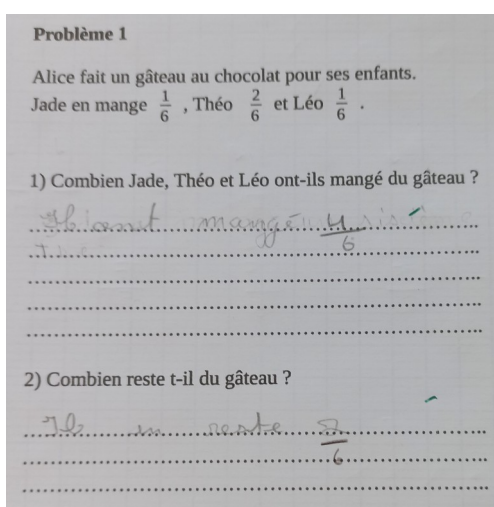 Problème 1
Alice fait un gâteau au chocolat pour ses enfants.
Jade en mange 1/6 , Théo 2/6 et Léo 1/6 .
1) Combien Jade, Théo et Léo ont-ils mangé du gâteau ?
mangé 4/6
2) Combien reste t-il du gâteau ?
Il en reste 2/6